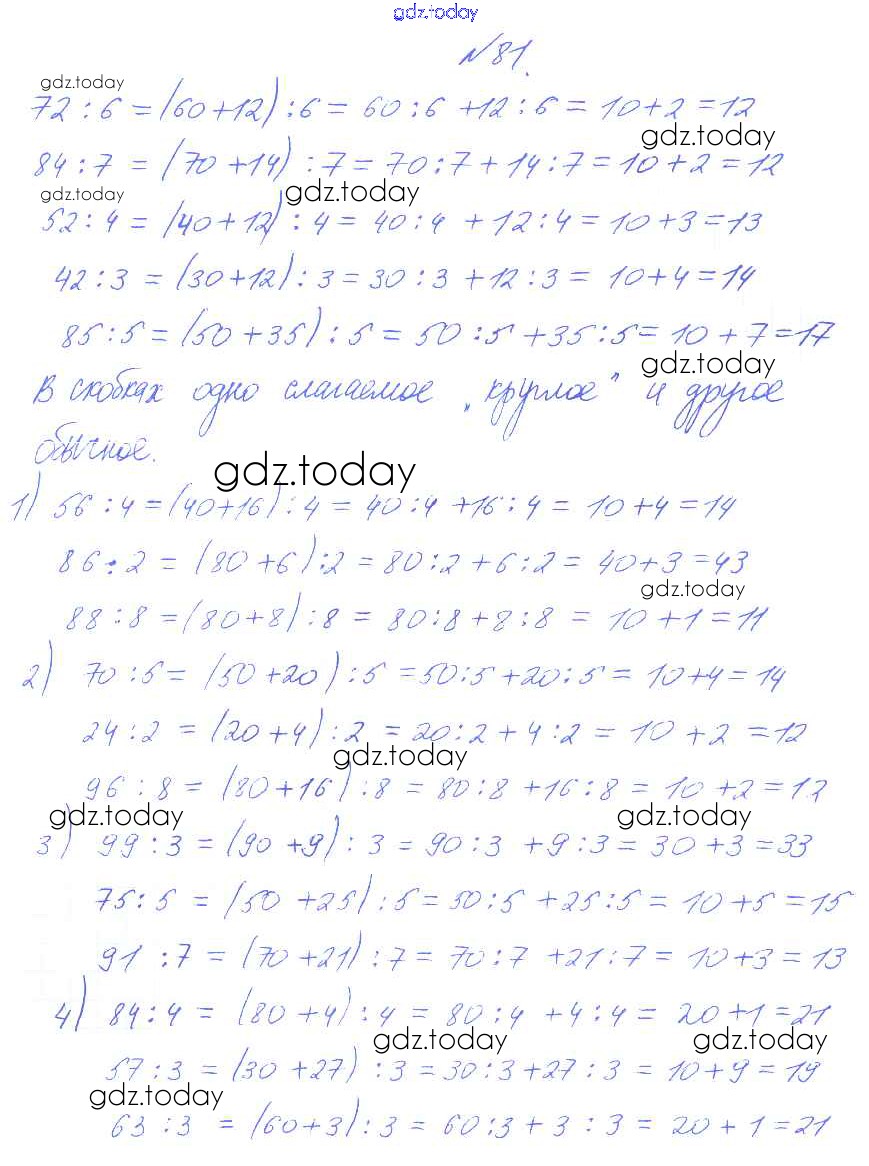 gdz.today
№81.
gdz.today
72 : 6 = (60+12) : 6 = 60 : 6 + 12 : 6 = 10+2 = 12
gdz.today
84 : 7 = (70+14) : 7 = 70 : 7 + 14 : 7 = 10+2 = 12
gdz.today gdz.today
52 : 4 = (40+12) : 4 = 40 : 4 + 12 : 4 = 10+3 = 13
42 : 3 = (30+12) : 3 = 30 : 3 + 12 : 3 = 10+4 = 14
85 : 5 = (50+35) : 5 = 50 : 5 + 35 : 5 = 10+7 = 17
gdz.today
В скобках одно слагаемое „круглое" и другое
обычное.
gdz.today
1) 56 : 4 = (40+16) : 4 = 40 : 4 + 16 : 4 = 10+4 = 14
86 : 2 = (80+6) : 2 = 80 : 2 + 6 : 2 = 40+3 = 43
gdz.today
88 : 8 = (80+8) : 8 = 80 : 8 + 8 : 8 = 10+1 = 11
2) 70 : 5 = (50+20) : 5 = 50 : 5 + 20 : 5 = 10+4 = 14
24 : 2 = (20+4) : 2 = 20 : 2 + 4 : 2 = 10+2 = 12
gdz.today
96 : 8 = (80+16) : 8 = 80 : 8 + 16 : 8 = 10+2 = 12
gdz.today gdz.today
3) 99 : 3 = (90+9) : 3 = 90 : 3 + 9 : 3 = 30+3 = 33
75 : 5 = (50+25) : 5 = 50 : 5 + 25 : 5 = 10+5 = 15
91 : 7 = (70+21) : 7 = 70 : 7 + 21 : 7 = 10+3 = 13
4) 84 : 4 = (80+4) : 4 = 80 : 4 + 4 : 4 = 20+1 = 21
gdz.today gdz.today
57 : 3 = (30+27) : 3 = 30 : 3 + 27 : 3 = 10+9 = 19
gdz.today
63 : 3 = (60+3) : 3 = 60 : 3 + 3 : 3 = 20+1 = 21